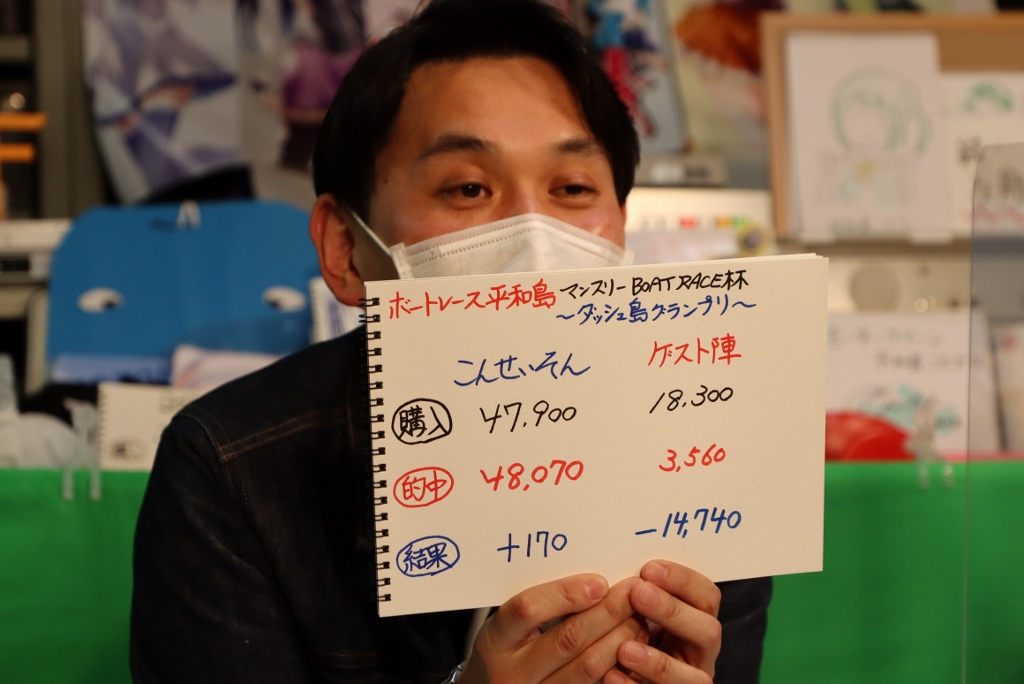 ボートレース平和島 マンスリー BOAT RACE杯
〜ダッシュ島グランプリ〜
こんせいそん ゲスト陣
購入 47,900 18,300
的中 48,070 3,560
結果 +170 -14,740